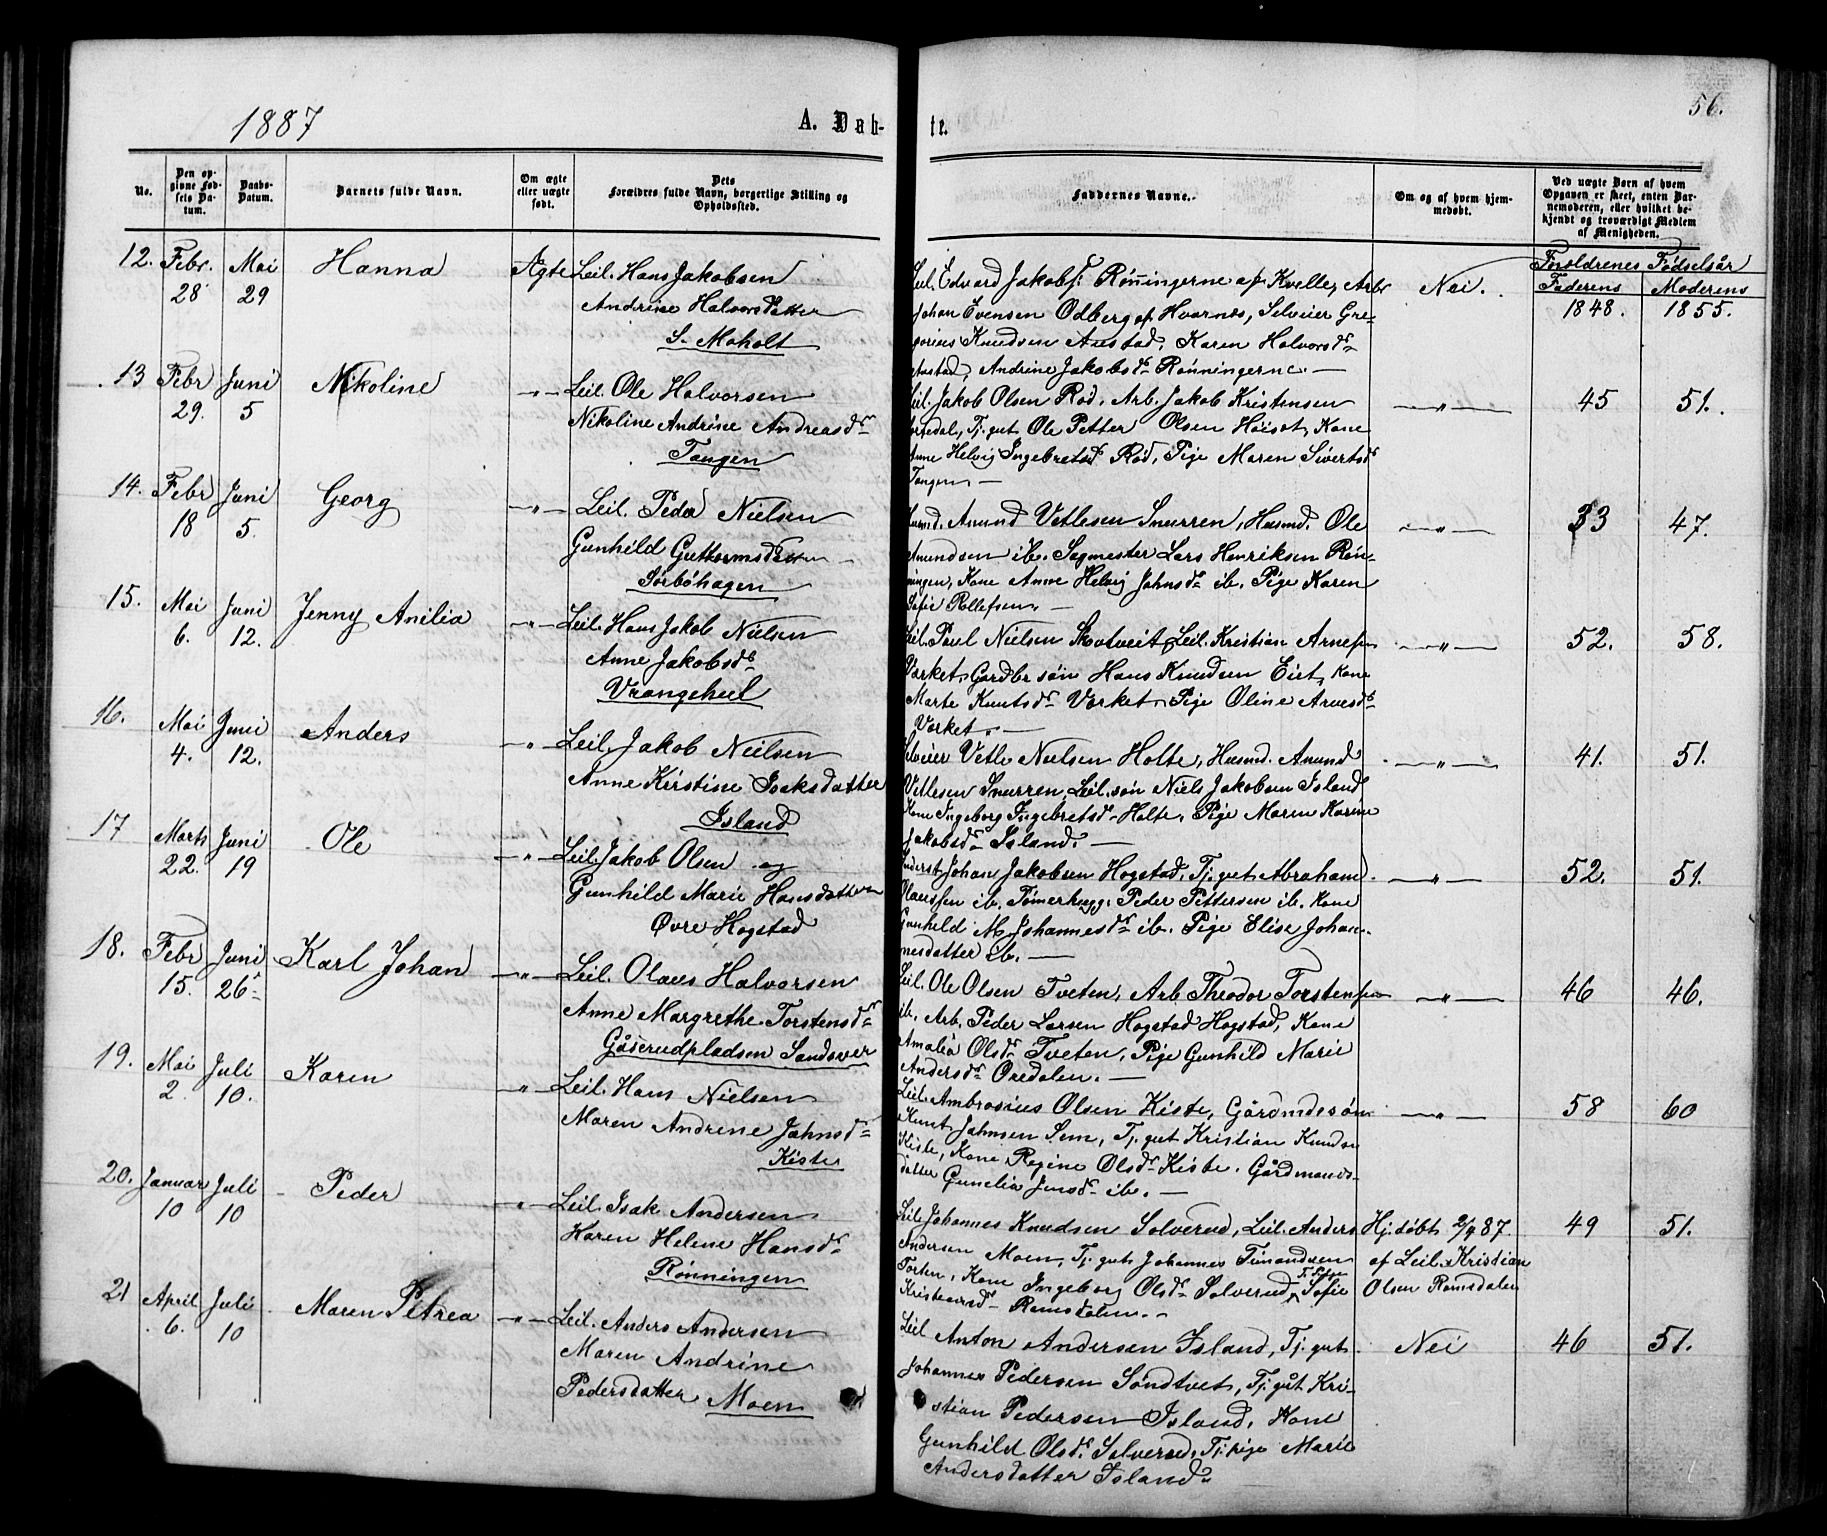 1887
A. Døb-
te.
56.
No.
Den op-
givne Fød-
sels Da-
tum.
Daabs-
Datum.
Barnets fulde Navn.
Om ægte
eller uægte
født.
Dets
Forældres fulde Navn, borgerlige Stilling og
Opholdssted.
Faddernes Navne.
Om og af hvem hjem-
medøbt.
Ved uægte Børn af hvem
Opgaven er skeet, enten Bar-
nemoderen, eller hvilket be-
kjendt og troværdigt Medlem
af Menigheden.
Forældrenes Fødselsår
Faderens Moderens
12. Febr. 28 Mai 29 Hanna Ægte Leil. Hans Jakobsen
Andrine Halvorsdatter
S. Moholt
Leil. Edvard Jakobs. Rønningerne af Kvelle, Arbr
Johan Evensen Odberg af Hvarnes, Selveier Gre-
gorius Knudsen Austad, Karen Halvorsdr
Austad, Andrine Jakobsdr Rønningerne. —
Nei. 1848. 1855.
13 Febr 29. Juni 5 Nikoline —"— Leil. Ole Halvorsen
Nikoline Andrine Andreasdr
Tangen
Leil. Jakob Olsen Rød, Arb. Jakob Kristensen
Tj. gut Ole Petter Olsen Høiset, Kone
Anne Helvig Ingebretsdr Rød, Pige Maren Sivertsdr
Tangen —
—"— 45 51.
14. Febr 18 Juni 5. Georg —"— Leil. Peder Nielsen
Gunhild Guttormsdatter
Sørbøhagen
Husmd. Amund Vetlesen Snurren, Husmd. Ole
Amundsen ib. Sagmester Lars Henriksen Røn-
ningen, Kone Anne Helvig Jahnsdr ib. Pige Karen
Sofie Rollefsen. —
—"— 33 47.
15. Mai 6. Juni 12. Jenny Anilia —"— Leil. Hans Jakob Nielsen
Anne Jakobsdr
Vrangeheel
Leil. Poul Nielsen Skotveit, Leil. Kristian Arnesen
Værket, Gardbr søn Hans Knudsen Eiet, Kone
Marte Knutsdr Værket, Pige Oline Arnesdr
Værket. —
—"— 52. 58.
16. Mai 4. Juni 12. Anders —"— Leil. Jakob Nielsen
Anne Kirstine Isaksdatter
Island
Selveier Vetle Nielsen Holte, Husmd. Amund
Vetlesen Snurren, Leil. søn Niels Jakobsen Island
Kone Ingeborg Ingebretsdr Holte, Pige Maren Karine
Jakobsdr Island. —
—"— 41. 51.
17 Marts 22. Juni 19 Ole —"— Leil. Jakob Olsen og
Gunhild Marie Hansdatter
Øvre Hogstad
Inderst Johan Jakobsen Hogstad, Tj. gut Abraham
Olaussen ib. Tømerhugg. Peder Pettersen ib. Kone
Gunhild M. Johannesdr ib. Pige Elise Johan-
nesdatter ib. —
—"— 52. 51.
18. Febr 15. Juni 26 Karl Johan —"— Leil. Olaus Halvorsen
Anne Margrethe Torstensdr
Gåserudpladsen Sandsver
Leil. Ole Olsen Tveten, Arb. Theodor Torstensen
ib. Arb. Peder Larsen Hogstad Hogstad, Kone
Amalia Olsdr Tveten, Pige Gunhild Marie
Andersdr Oredalen. —
—"— 46 46.
19. Mai 2 Juli 10. Karen —"— Leil. Hans Nielsen
Maren Andrine Jahnsdr
Kiste
Leil. Ambrosius Olsen Kiste, Gårdmdssøn
Knut Jahnsen Sem, Tj. gut Kristian Knudsen
Kiste, Kone Regine Olsdr Kiste. Gårdmands-
datter Gunelia Jensdr ib. —
—"— 58 60
20. Januar 10 Juli 10 Peder —"— Leil. Isak Andersen
Karen Helene Hansdr
Rønningen
Leil. Johannes Knudsen Solverud, Leil. Anders
Andersen Moen, Tj. gut Johannes Timandsen
Torten, Kone Ingeborg Olsdr Solverud, Sofie
Kristiansdr Ramsdalen. —
Hj. døbt 2/4 87.
af Leil. Kristian
Olsen Ramsdalen
49 51.
21 April 6. Juli 10 Maren Petrea —"— Leil. Anders Andersen
Maren Andrine
Pedersdatter Moen
Leil Anton Andersen Island, Tj. gut
Johannes Pedersen Søndtvet, Tj. gut Kri-
stian Pedersen Island, Kone
Gunhild Olsdr Solverud, Tj. pige Marie
Andersdatter Island.
Nei 46 51.